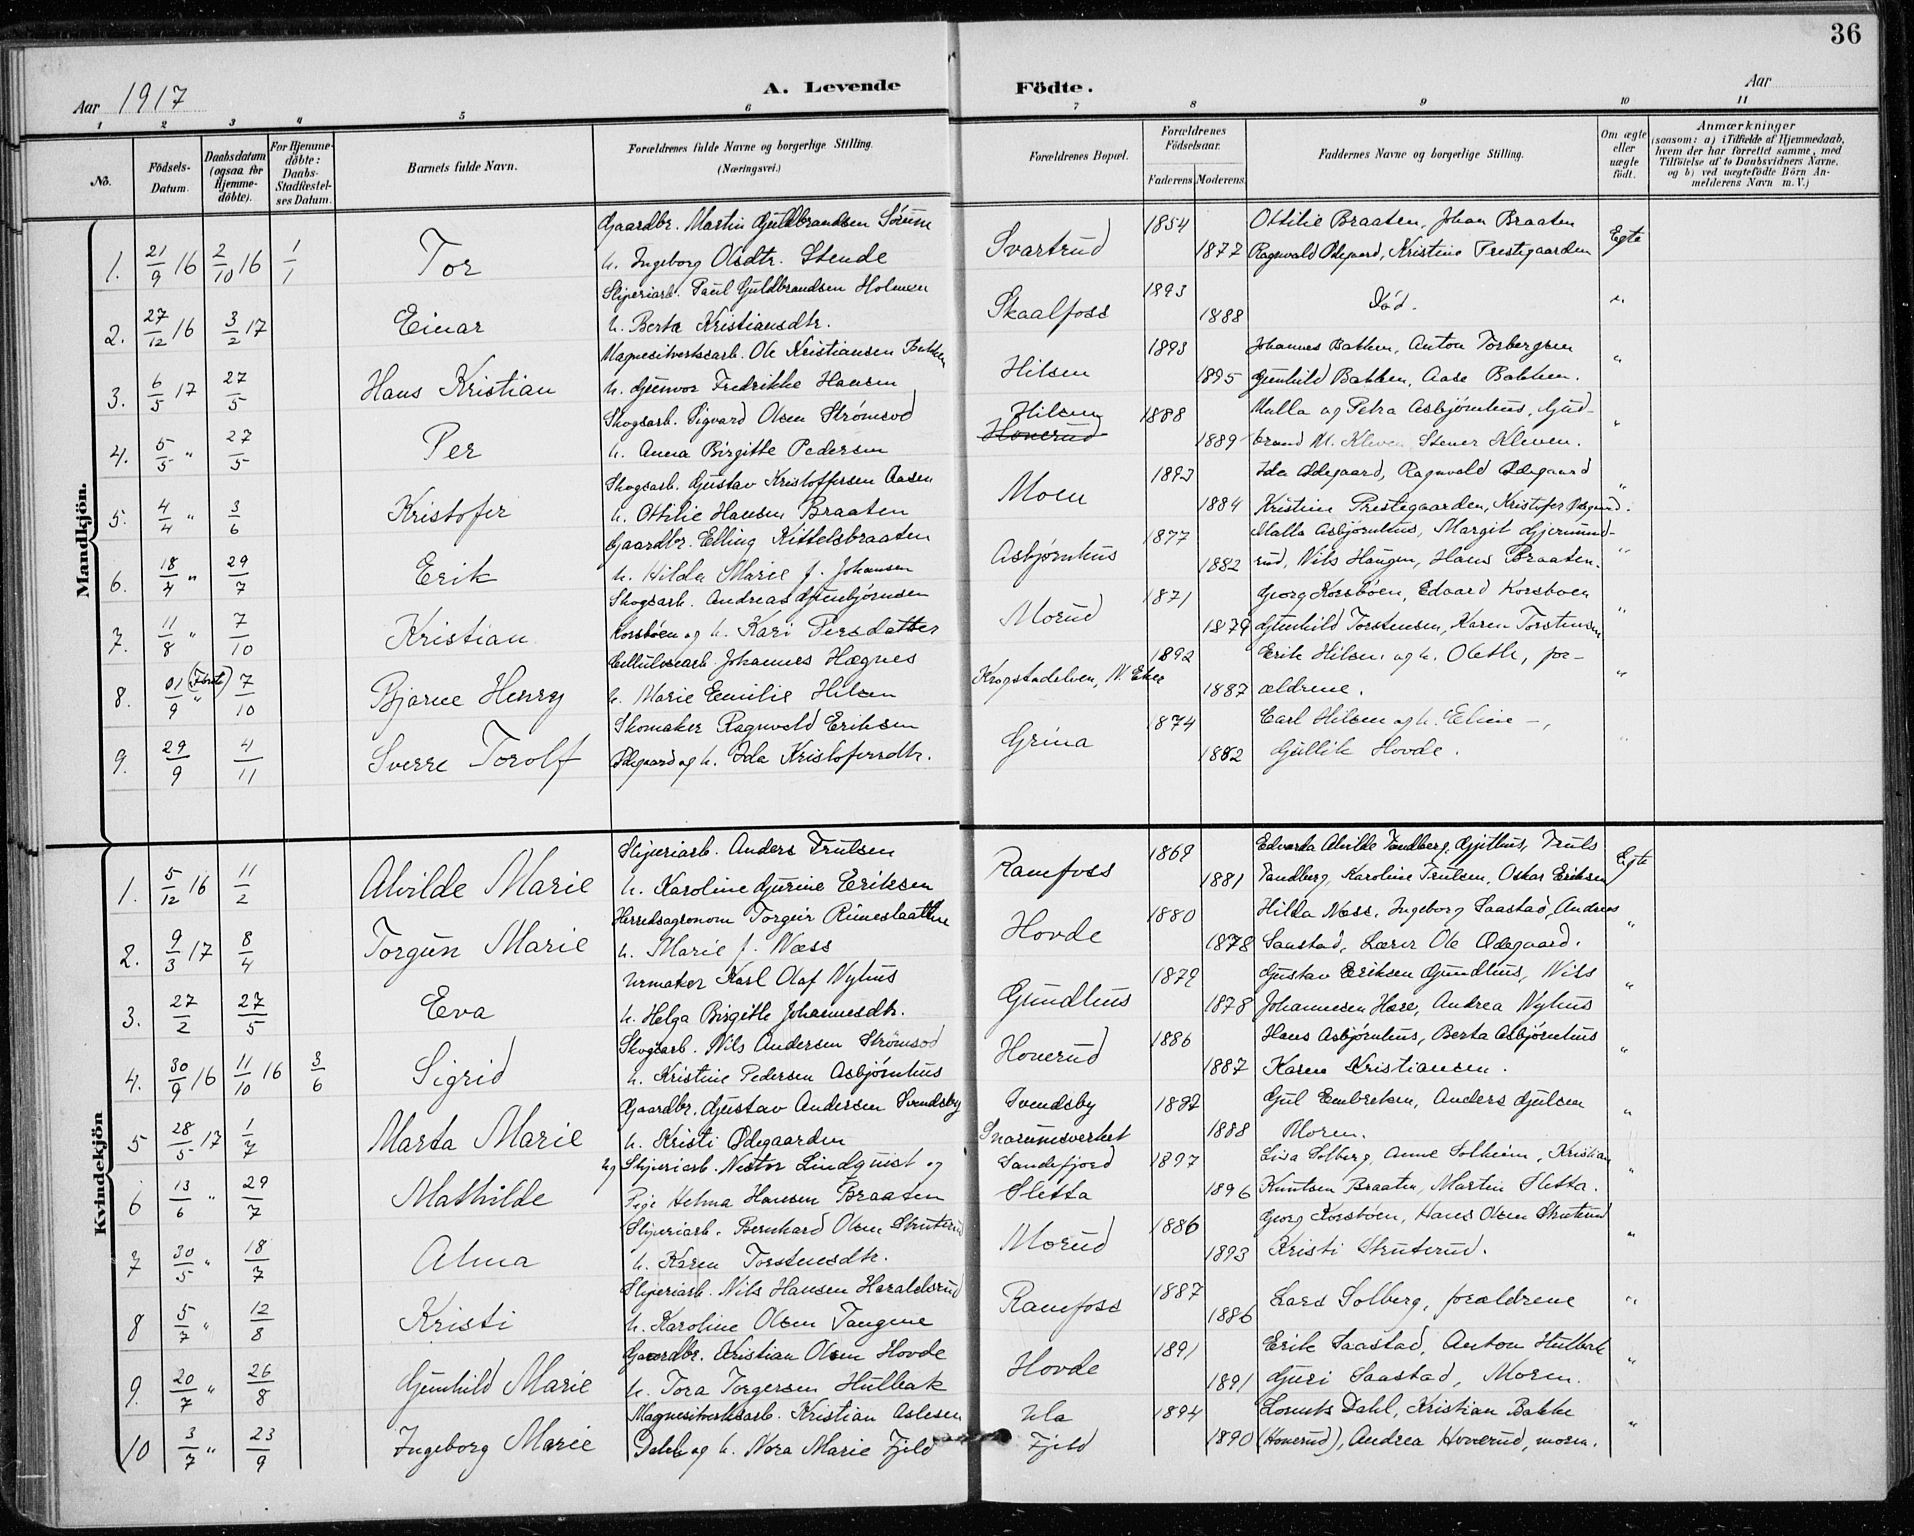 36
Aar 1917
A. Levende Födte.
Aar
1 2 3 4 5 6 7 8 9 10 11
No.
Födsels-Datum.
Daabsdatum (ogsaa för Hjemme-döbte).
For Hjemme-döbte: Daabs-Stadfæstel-ses Datum.
Barnets fulde Navn.
Forældrenes fulde Navne og borgerlige Stilling. (Næringsvei.)
Forældrenes Bopæl.
Forældrenes Födselsaar.
Faderens Moderens.
Faddernes Navne og borgerlige Stilling.
Om ægte eller uægte födt.
Anmærkninger
(saasom: a) i Tilfælde af Hjemmedaab, hvem der har forrettet samme, med Tilföielse af to Daabsvidners Navne, og b) ved uægtefödte Börn An-melderens Navn m. V.)
Mandkjön.
Gaardbr. Martin Guldbrandsen Sørum 1854 Ottilie Braaten, Johan Braaten
1. 21/9 16 2/10 16 1/1 Tor h. Ingeborg Olsdtr. Stende Svartrud 1877 Ragnvald Ødegaard, Kristine Prestegaarden Egte
Sliperiarb. Paul Guldbrandsen Holmen 1893 Død.
2. 27/12 16 3/2 17 Einar h. Berta Kristiansdtr. Skaalfoss 1888 "
Magnesitverksarb. Ole Kristiansen Bakken 1893 Johannes Bakken, Anton Torbergsen
3. 6/5 17 27/5 Hans Kristian h. Gunvor Fredrikke Hansen Hilsen 1895 Gunhild Bakken, Aase Bakken. "
Skogsarb. Sigvard Olsen Strømsod Hilsen 1888 Malla og Petra Asbjørnhus, Gud-
4. 5/5 " 27/5 Per h. Anna Birgitte Pedersen Honerud 1889 brand M. Kleven Stener Kleven. "
Skogsarb. Gustav Kristoffersen Aasen 1892 Ida Ødegaard, Ragnvald Ødegaard
5. 4/4 " 3/6 Kristofer h. Ottilie Hansen Braaten Moen 1884 Kristine Prestegaarden, Kristofer Ødegaard. "
Gaardbr. Elling Kittelsbraaten 1877 Malla Asbjørnhus, Margit Gjermund-
6. 18/4 " 29/7 Erik h. Hilda Marie f. Johansen Asbjørnhus 1882 rud, Nils Haugen, Hans Braaten. "
Skogsarb. Andreas Gunbjørnsen 1871 Georg Korsbøen, Edvard Korsboen
7. 11/8 " 7/10 Kristian Korsbøen og h. Kari Persdatter Morud 1879 Gunhild Torstensen, Karen Torstensen "
Cellulosearb. Johannes Hægnes 1892 Erik Hilsen og h. Oleth, for-
8. 01 (Første)/9 " 7/10 Bjarne Henry h. Marie Emilie Hilsen Krogstadelven, N. Eker 1887 ældrene. "
Skomaker Ragnvald Eriksen 1874 Carl Hilsen og h. Eline -,
9. 29/9 4/11 Sverre Torolf Ødegaard og h. Ida Kristoferrdtr. Grina 1882 Gullik Hovde. "
Kvindekjön
Sliperiarb. Anders Trulsen 1869 Edvarda Alvilde Tandberg, Gjithus, Truls
1. 5/12 16 11/2 Alvilde Marie h. Karoline Gurine Eriksen Ramfoss 1881 Tandberg, Karoline Trulsen, Oskar Eriksen Egte
Herredsagronom Torgeir Rimeslaatten 1880 Hilda Næss, Ingeborg Saastad, Andreas
2. 9/3 17 8/4 Torgun Marie h. Marie f. Næss Hovde 1878 Saastad, Lærer Ole Ødegaard. "
Urmaker Karl Olaf Nyhus 1879 Gustav Eriksen Gundhus, Nils
3. 27/2 27/5 Eva h. Helga Birgitte Johannesdtr. Gundhus 1878 Johannesen Hære, Andrea Nyhus "
Skogsarb. Nils Andersen Strømsod 1886 Hans Asbjørnhus, Berta Asbjørnhus
4. 30/9 16 11/10 16 3/6 Sigrid h. Kristine Pedersen Asbjørnhus Honerud 1887 Karen Kristiansen. "
Gaardbr. Gustav Andersen Svendsby Svendsby 1892 Gul Embretsen, Anders Gulsen
5 28/5 17 1/7 Marta Marie h. Kristi Ødegaarden Snarumsverket 1888 Moren. "
ug Sliperiarb. Nestor Lindquist og Sandefjord 1897 Lisa Solberg, Anne Solheim, Kristian
6 13/6 " 29/7 Mathilde Pige Helma Hansen Braaten Sletta 1896 Knutsen Braaten, Martin Sletta. "
Sliperiarb. Bernhard Olsen Struterud 1886 Georg Korsbøen, Hans Olsen Struterud
7 30/5 " 18/7 Alma h. Karen Torstensdtr. Morud 1893 Kristi Struterud. "
Sliperiarb. Nils Hansen Haraldsrud 1887
8 5/7 " 12/8 Kristi h. Karoline Olsen Tangene Ramfoss 1886 Lars Solberg, forældrene "
Gaardbr. Kristian Olsen Hovde 1891 Erik Saastad, Anton Hulbak
9. 20/7 " 26/8 Gunhild Marie h. Tora Torgersen Hulbak Hovde 1891 Guri Saastad, Moren. "
Magnesitverksarb. Kristian Aslesen Ula 1894 Lorents Dahl, Kristian Bakke
10 3/7 " 23/9 Ingeborg Marie Dahl og h. Nora Marie Fjeld Fjeld 1890 (Honerud), Andrea Honerud, moren. "